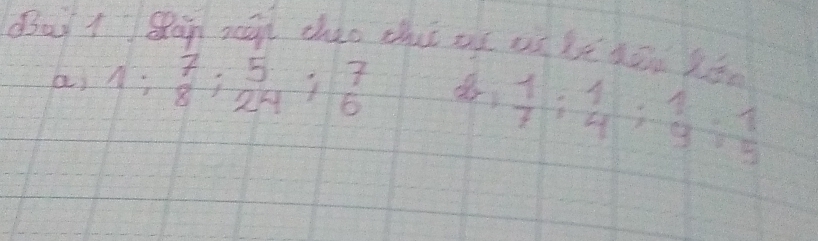 Bài 1: Sắp xếp theo thứ tự từ bé đến lớn
a, 1 ; 7/8 ; 5/24 ; 7/6    b, 1/7 ; 1/4 ; 1/9 ; 1/5